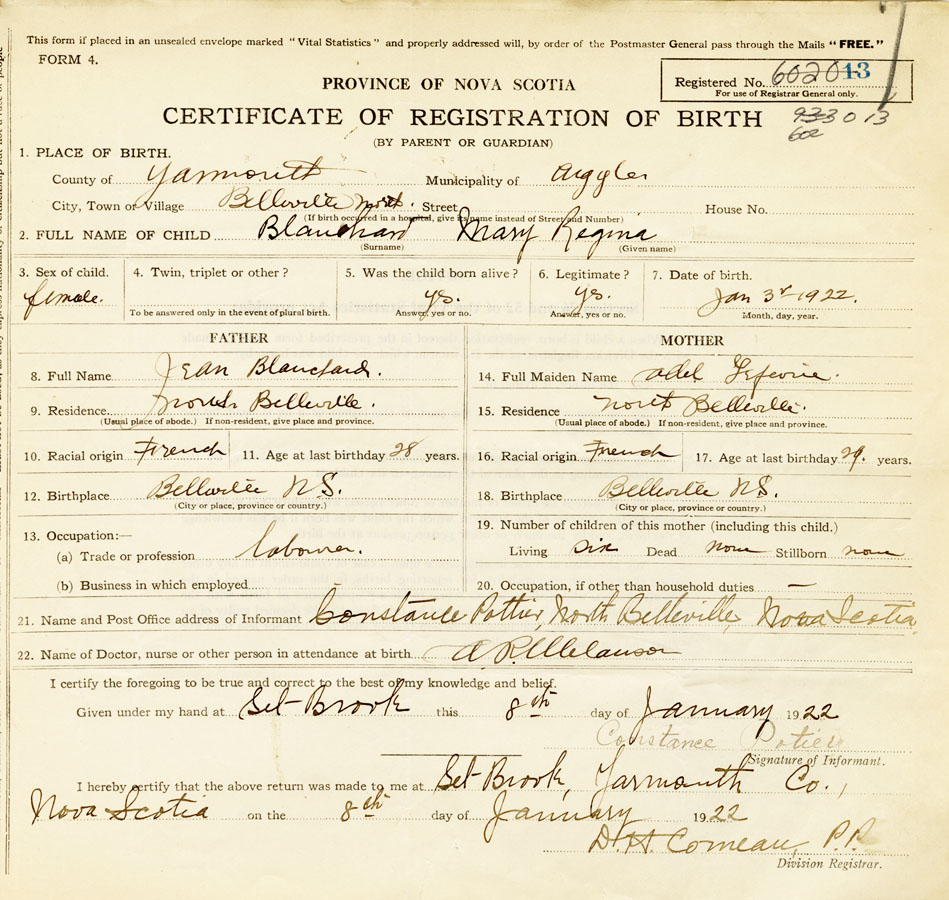 This form if placed in an unsealed envelope marked "Vital Statistics" and properly addressed will, by order of the Postmaster General pass through the Mails "FREE."
FORM 4.
PROVINCE OF NOVA SCOTIA
Registered No. 602013
For use of Registrar General only.
CERTIFICATE OF REGISTRATION OF BIRTH
933013
602
(BY PARENT OR GUARDIAN)
1. PLACE OF BIRTH.
County of Yarmouth Municipality of Argyle
City, Town or Village Belleville North. Street House No.
(If birth occurred in a hospital, give its name instead of Street and Number)
2. FULL NAME OF CHILD Blanchard Mary Regina
(Surname) (Given name)
3. Sex of child. 4. Twin, triplet or other? 5. Was the child born alive? 6. Legitimate? 7. Date of birth.
female. yes. yes. Jan 3rd 1922.
To be answered only in the event of plural birth. Answer, yes or no. Answer, yes or no. Month, day, year.
FATHER MOTHER
8. Full Name Jean Blanchard. 14. Full Maiden Name Odel
9. Residence North Belleville. 15. Residence North Belleville.
(Usual place of abode.) If non-resident, give place and province. (Usual place of abode.) If non-resident, give place and province.
10. Racial origin French 11. Age at last birthday 28 years. 16. Racial origin French 17. Age at last birthday 29. years.
12. Birthplace Belleville N.S. 18. Birthplace Belleville N.S.
(City or place, province or country.) (City or place, province or country.)
13. Occupation:— 19. Number of children of this mother (including this child.)
(a) Trade or profession labourer. Living six Dead none Stillborn none
(b) Business in which employed 20. Occupation, if other than household duties —
21. Name and Post Office address of Informant Constance Pottier, North Belleville, Nova Scotia
22. Name of Doctor, nurse or other person in attendance at birth A. R. Melanson
I certify the foregoing to be true and correct to the best of my knowledge and belief.
Given under my hand at Sel-Brook this 8th day of January 1922
Constance Potier
Signature of Informant.
I hereby certify that the above return was made to me at Sel-Brook, Yarmouth Co.,
Nova Scotia on the 8th day of January 1922
D. H. Comeau, P.P.
Division Registrar.